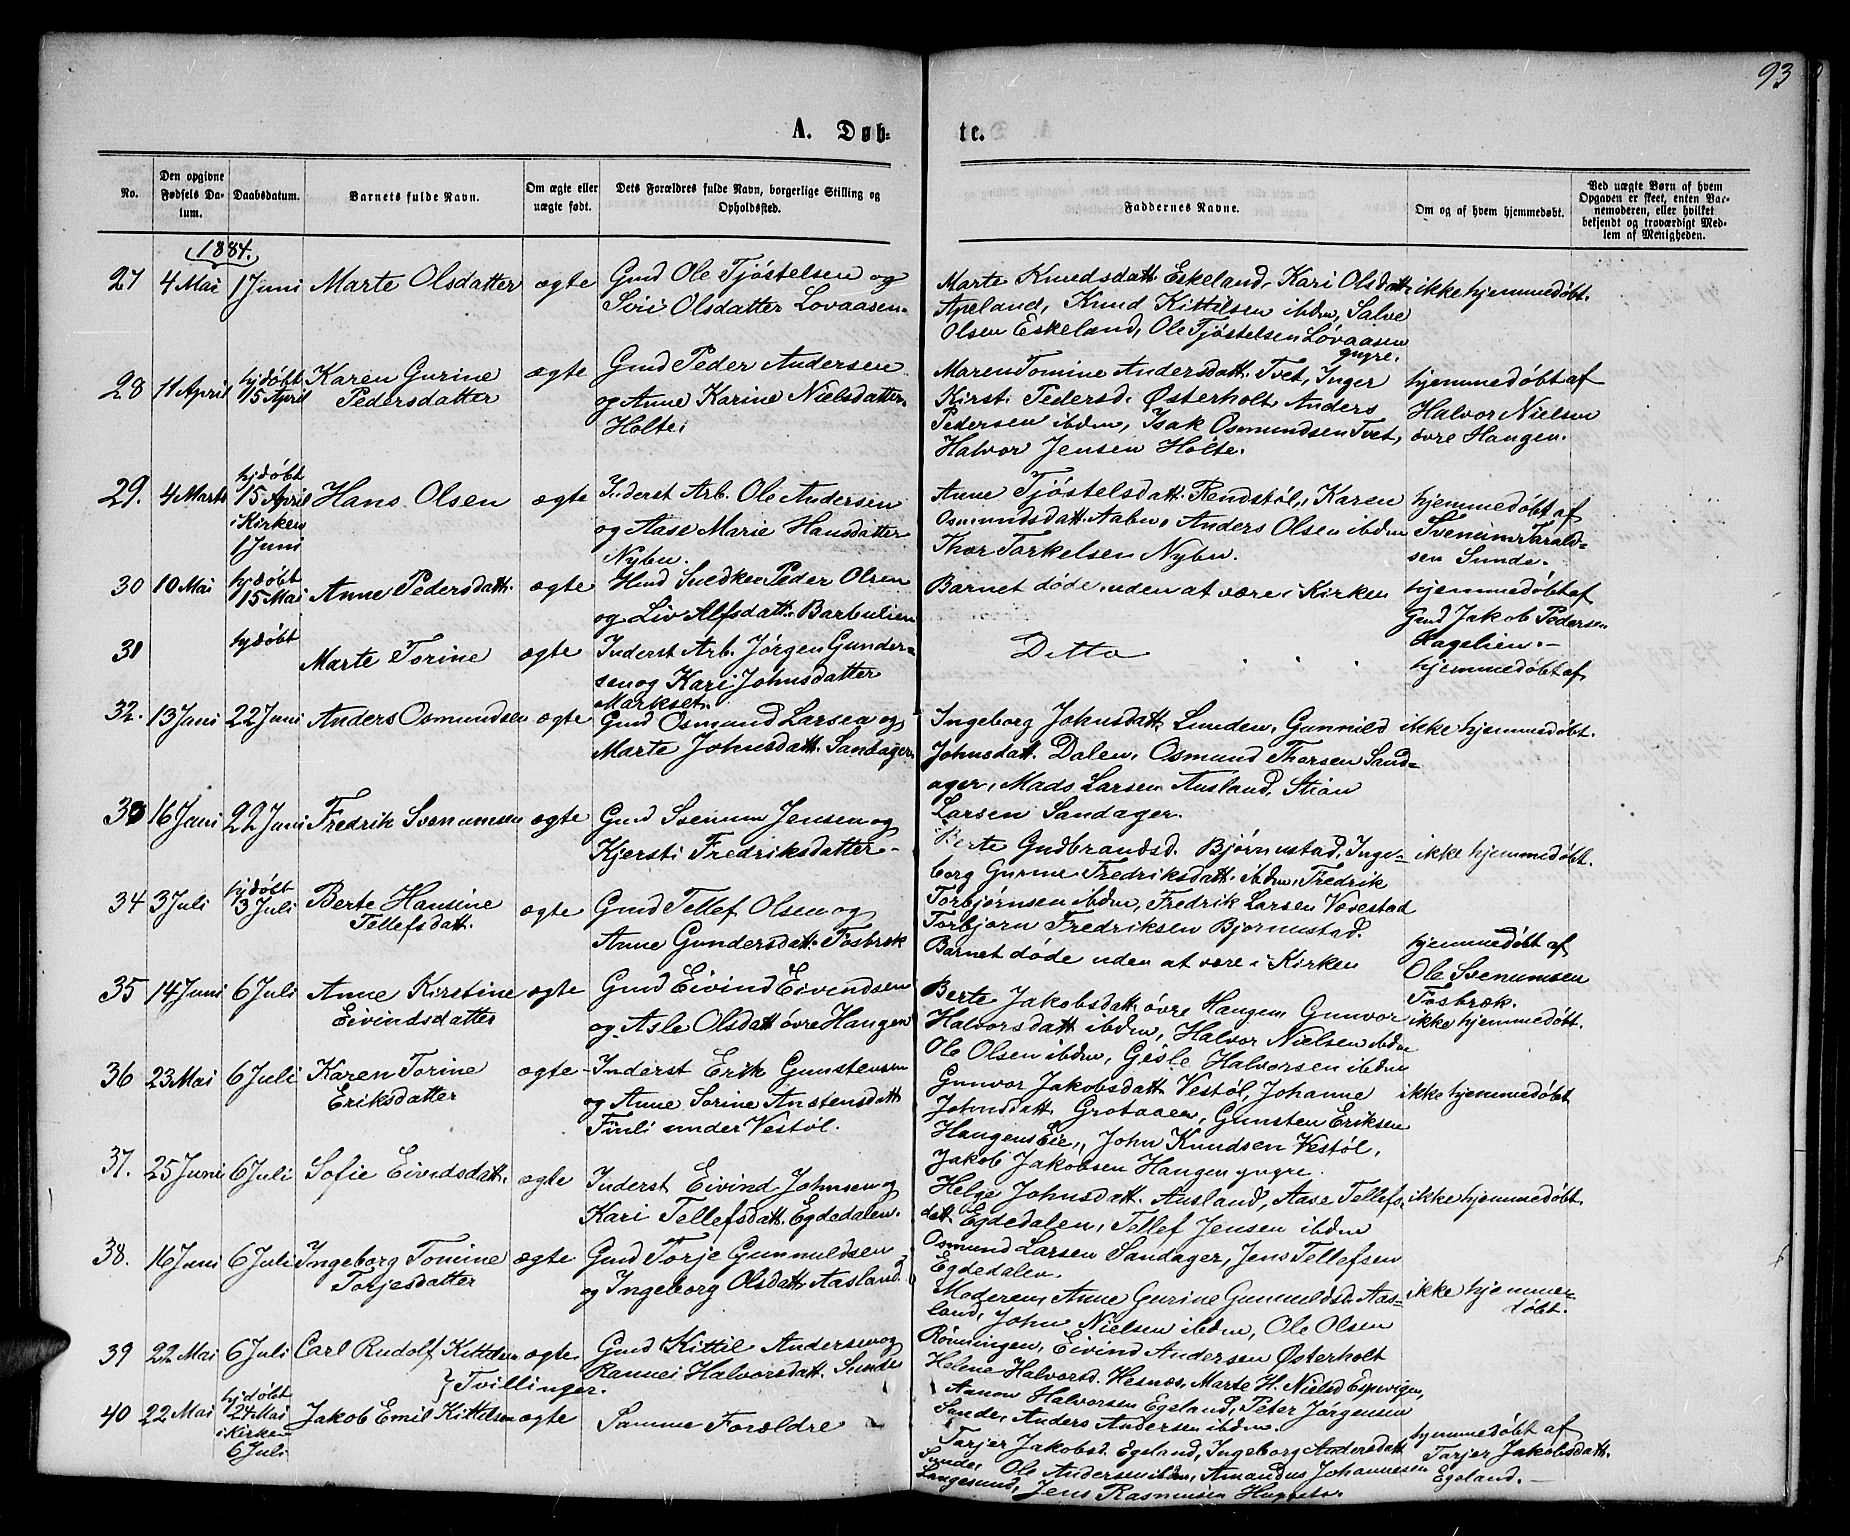 93
A. Døb-
te.
No.
Den opgivne Fødsels Da-
tum.
Daabsdatum.
Barnets fulde Navn.
Om ægte eller
uægte født.
Dets Forældres fulde Navn, borgerlige Stilling og
Opholdssted.
Faddernes Navne.
Om og af hvem hjemmedøbt.
Ved uægte Børn af hvem
Opgaven er skeet, enten Bar-
nemoderen, eller hvilket
bekjendt og troværdigt Med-
lem af Menigheden.
1884.
27 4 Mai 1 Juni Marte Olsdatter ægte
Gmd Ole Tjöstelsen og
Siri Olsdatter Lovaasen.
Marte Knudsdatt. Eskeland, Kari Olsdatt.
Apeland, Knud Kittilsen ibdm, Salve
Olsen Eskeland, Ole Tjöstelsen Lövaasen
yngre.
ikke hjemmedöbt.
28 11 April hjdöbt
15 April
Karen Gurine
Pedersdatter
ægte
Gmd Peder Andersen
og Anne Karine Nielsdatter
Holte.
Maren Tomine Andersdatt. Tvet, Inger
Kirst. Pedersd. Østerholt, Anders
Pedersen ibdm, Isak Osmundsen Tvet,
Halvor Jensen Holte.
hjemmedöbt af
Halvor Nielsen
övre Hangen.
29. 4 Marts hjdöbt
15 April
i Kirken
1 Juni
Hans Olsen ægte
Inderst Arb. Ole Andersen
og Aase Marie Hansdatter
Nybu.
Anne Tjöstelsdatt. Rendstöl, Karen
Osmundsdatt. Aabu, Anders Olsen ibdm
Thor Torkelsen Nybu.
hjemmedöbt af
Svenum Tarald-
sen Sunde.
30 10 Mai hjdöbt
15 Mai
Anne Pedersdatt. ægte
Hmd Snedker Peder Olsen
og Liv Alfsdatt. Barbulien
Barnet döde uden at være i Kirken
hjemmedöbt af
Gmd Jakob Pedersen
Hagelien.
31 hjdöbt
Marte Torine ægte
Inderst Arb. Jörgen Gunder-
sen og Kari Johnsdatter
Markset.
Ditto
hjemmedöbt af
32. 13 Juni 22 Juni Anders Osmundsen ægte
Gmd Osmund Larsen og
Marte Johnsdatt. Sandager.
Ingeborg Johnsdatt. Lunden, Gunnild
Johnsdatt. Dalen, Osmund Thorsen Sand-
ager, Mads Larsen Ausland, Stian
Larsen Sandager.
ikke hjemmedöbt.
33 16 Juni 22 Juni Fredrik Svenumsen ægte
Gmd Svenum Jensen og
Kjersti Fredriksdatter
Berte Gudbrandsd. Björnustad, Inge-
borg Gurine Fredriksdatt. ibdm, Fredrik
Torbjörnsen ibdm, Fredrik Larsen Vævestad
Torbjörn Fredriksen Björnustad.
ikke hjemmedöbt.
34 3 Juli hjdöbt
3 Juli
Berte Hansine
Tellefsdatt.
ægte
Gmd Tellef Olsen og
Anne Gundersdatt. Fosbræk
Barnet döde uden at være i Kirken
hjemmedöbt af
Ole Svenumsen
Fosbræk.
35 14 Juni 6 Juli Anne Kirstine
Eivindsdatter
ægte
Gmd Eivind Eivindsen
og Asle Olsdatt. övre Hangen
Berte Jakobsdatt. övre Hangen, Gunvor
Halvorsdatt ibdm, Halvor Nielsen ibdm
Ole Olsen ibdm, Gisle Halvorsen ibdm
ikke hjemmedöbt.
36 23 Mai 6 Juli Karen Torine
Eriksdatter
ægte
Inderst Erik Gunstensen
og Anne Sorine Anstensdatt
Finli under Vestöl.
Gunvor Jakobsdatt. Vestöl, Johanne
Johnsdatt. Grotaaen, Gunsten Eriksen
Hangens Eie, John Knudsen Vestöl,
Jakob Jakobsen Hangen yngre.
ikke hjemmedöbt
37. 25 Juni 6 Juli Sofie Eivindsdatt. ægte
Inderst Eivind Johnsen og
Kari Tellefsdatt. Egdedalen.
Helge Johnsdatt. Ausland, Aase Tellefs-
datt. Egdedalen, Tellef Jensen ibdm
Osmund Larsen Sandager, Jens Tellefsen
Egdedalen.
ikke hjemmedöbt.
38. 16 Juni 6 Juli Ingeborg Tomine
Torjesdatter
ægte
Gmd Torje Gunnuldsen
og Ingeborg Olsdatt. Aasland
Moderen, Anne Gurine Gunnuldsd. Aas-
land, John Nielsen ibdm, Ole Olsen
Rönningen, Eivind Andersen Østerholt
ikke hjemme-
döbt.
39 22 Mai 6 Juli Carl Rudolf Kittelsen ægte
Gmd Kittil Andersen og
Rannei Halvorsdatt. Sunde
Helene Halvorsd. Hesnæs, Marte H. Nielsd Espevigen,
Aanon Halvorsen Egeland, Peter Jörgensen
Sunde, Anders Andersen ibdm.
} Tvillinger.
40 22 Mai hjdöbt
24 Mai
i Kirken
6 Juli
Jakob Emil Kittelsen ægte
Samme Forældre
Tarjer Jakobsd. Egeland, Ingeborg Andersdatt
Sunde, Ole Andersen ibdm, Amandus Johannesen
Langesund, Jens Rasmusen
hjemmedöbt af
Tarjer Jakobsdatt.
Egeland.